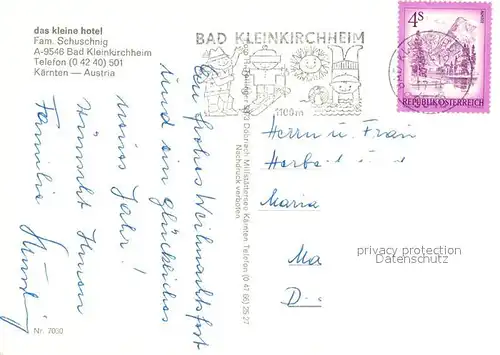 das kleine hotel
Fam. Schuschnig
A-9546 Bad Kleinkirchheim
Telefon (0 42 40) 501
Kärnten — Austria
BAD KLEINKIRCHHEIM
1100 m
4S
REPUBLIK ÖSTERREICH
Ein frohes Weihnachtsfest
und ein glückliches
neues Jahr!
wünscht Ihnen
Familie
Döbriach Millstättersee Kärnten Telefon (0 47 66) 25 27
Nachdruck verboten
Herrn u. Frau
Herbert
Maria
Ma
D
privacy protection
Datenschutz
Nr. 7060